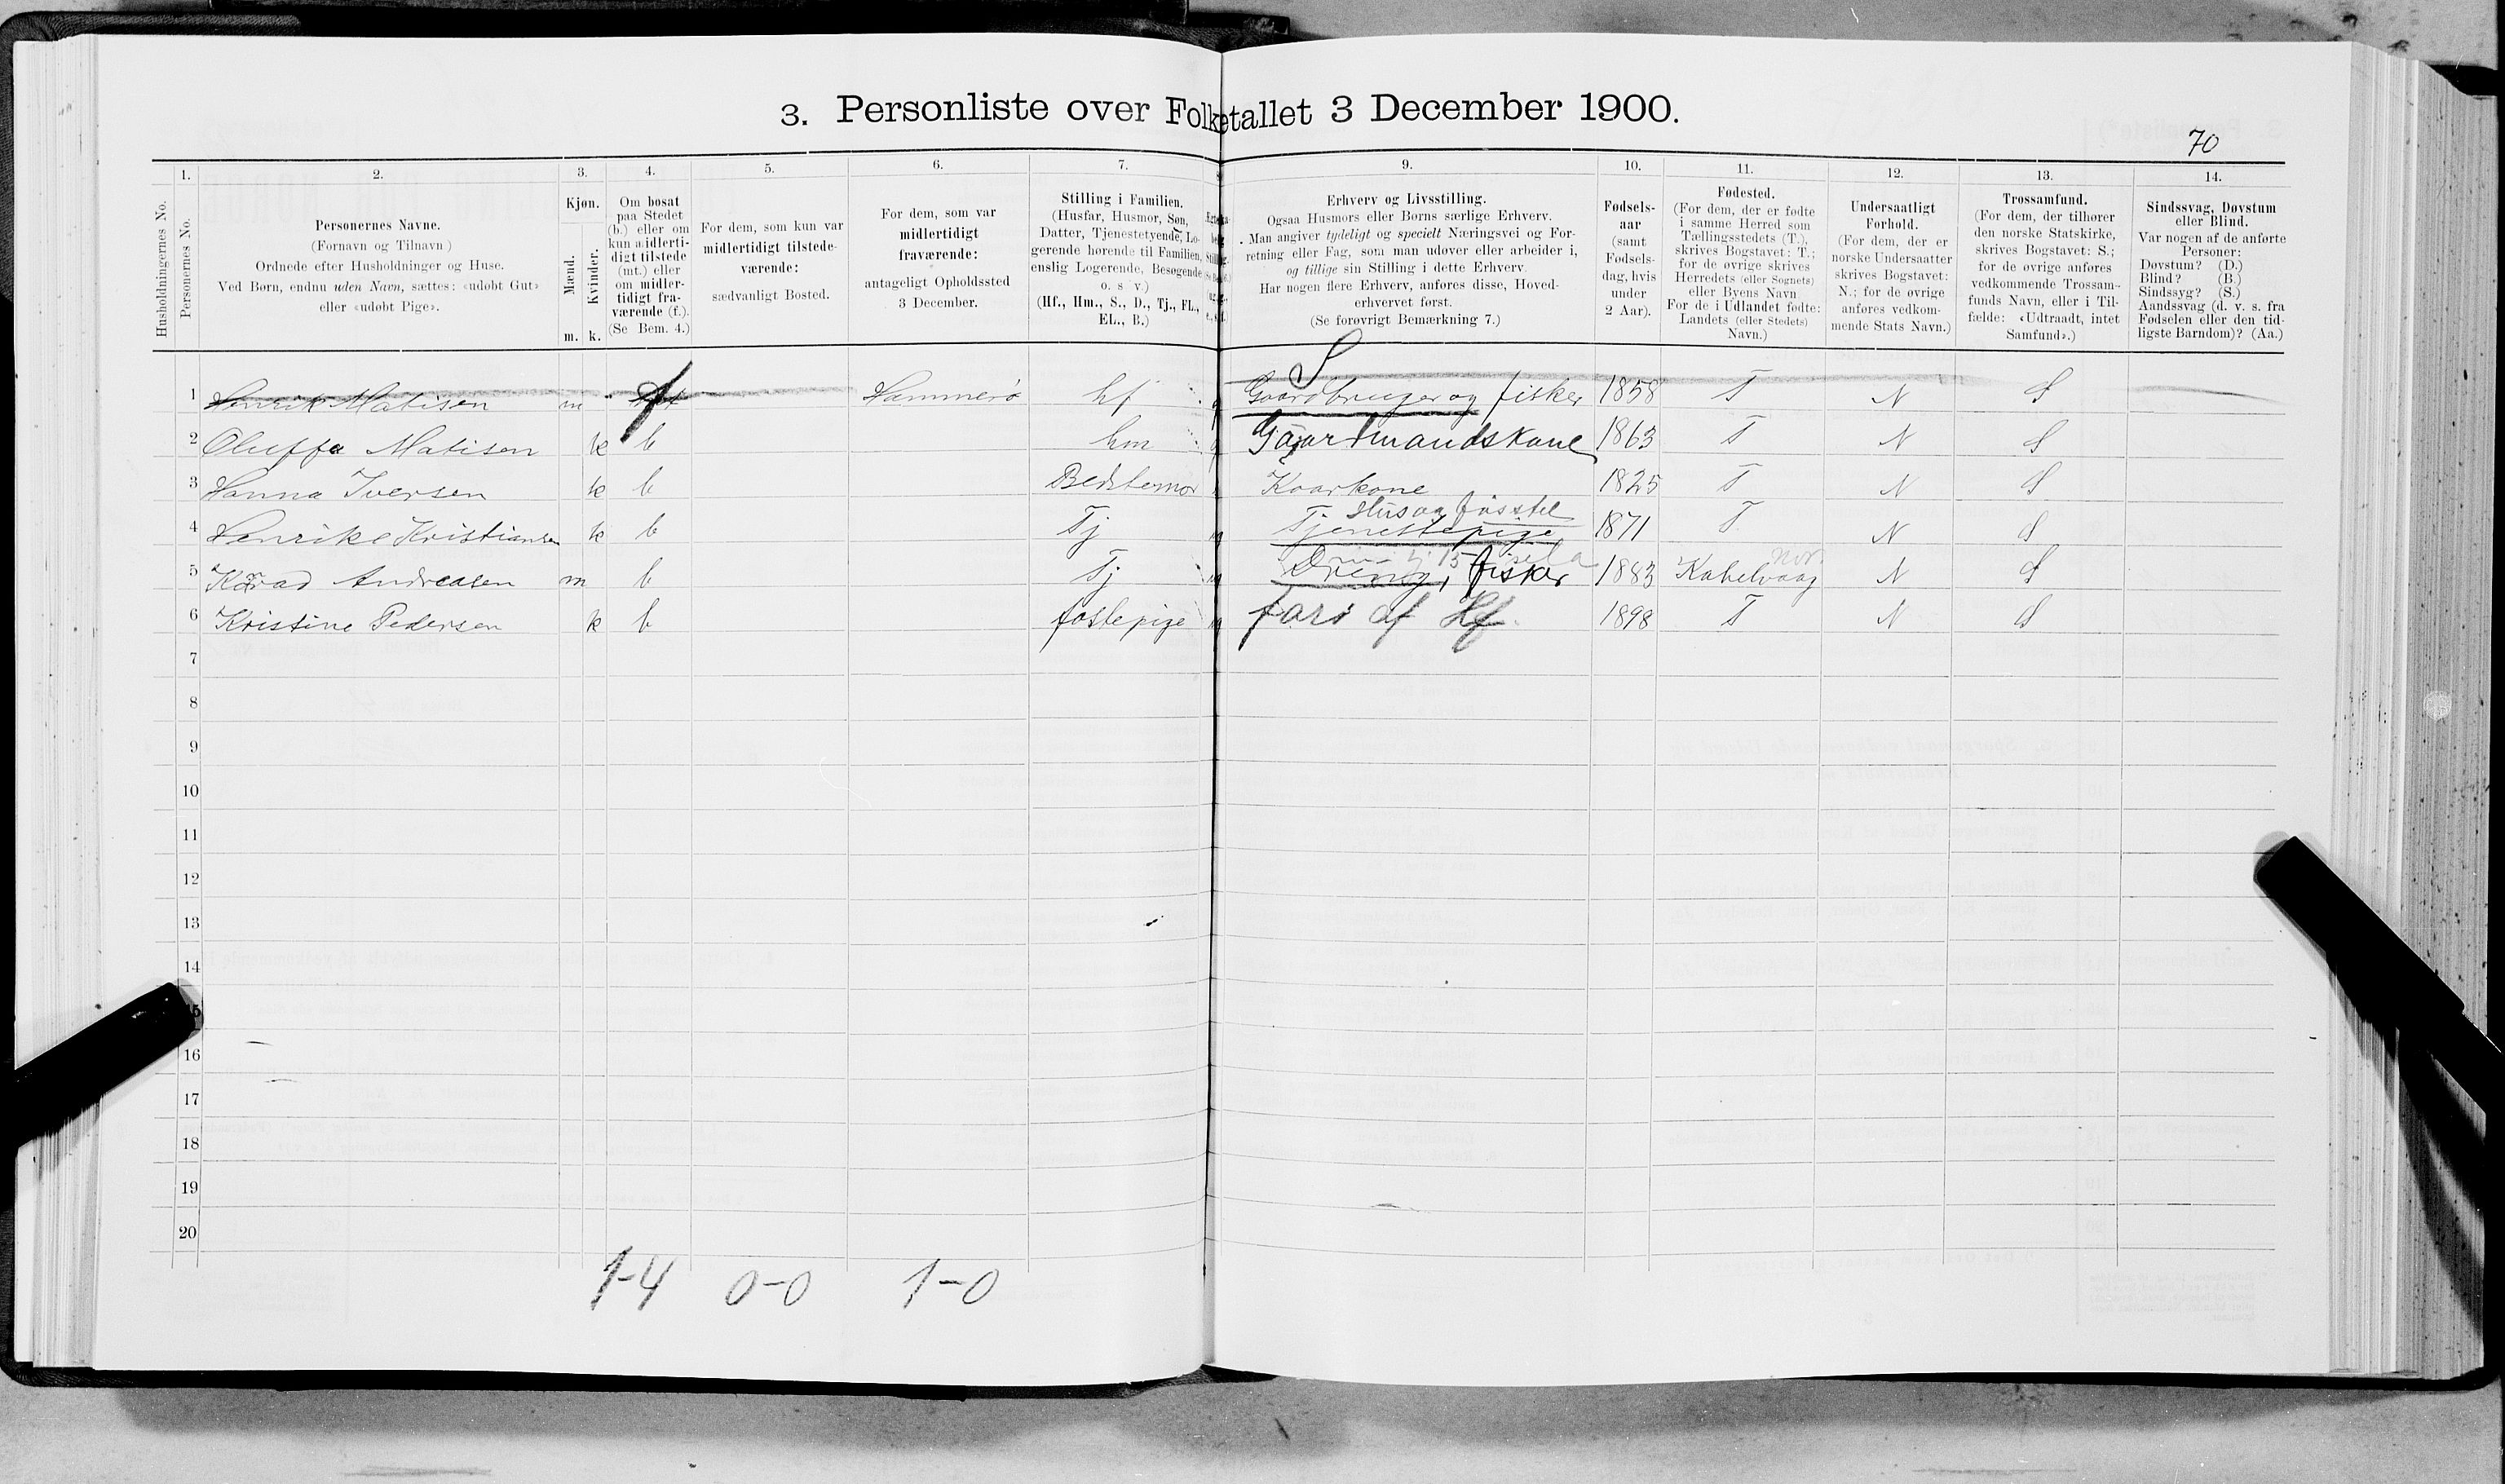 3. Personliste over Folketallet 3 December 1900.
70
1. 2. 3. 4. 5. 6. 7. 9. 10. 11. 12. 13. 14.
Husholdningernes No.
Personernes No.
Personernes Navne.
(Fornavn og Tilnavn)
Ordnede efter Husholdninger og Huse.
Ved Børn, endnu uden Navn, sættes: «udøbt Gut»
eller «udøbt Pige».
Kjøn.
Mænd.
Kvinder.
m. k.
Om bosat
paa Stedet
(b.) eller om
kun midlerti-
digt tilstede
(mt.) eller
om midler-
tidigt fra-
værende (f.).
(Se Bem. 4.)
For dem, som kun var
midlertidigt tilstede-
værende:
sædvanligt Bosted.
For dem, som var
midlertidigt
fraværende:
antageligt Opholdssted
3 December.
Stilling i Familien.
(Husfar, Husmor, Søn,
Datter, Tjenestetyende, Lo-
gerende hørende til Familien,
enslig Logerende, Besøgende
o. s. v.)
(Hf., Hm., S., D., Tj., FL.,
EL., B.)
Erhverv og Livsstilling.
Ogsaa Husmors eller Børns særlige Erhverv.
Man angiver tydeligt og specielt Næringsvei og For-
retning eller Fag, som man udøver eller arbeider i,
og tillige sin Stilling i dette Erhverv.
Har nogen flere Erhverv, anføres disse, Hoved-
erhvervet først.
(Se forøvrigt Bemærkning 7.)
Fødsels-
aar
(samt
Fødsels-
dag, hvis
under
2 Aar).
Fødested.
(For dem, der er fødte
i samme Herred som
Tællingsstedets (T.),
skrives Bogstavet: T.;
for de øvrige skrives
Herredets (eller Sognets)
eller Byens Navn.
For de i Udlandet fødte:
Landets (eller Stedets)
Navn.)
Undersaatligt
Forhold.
(For dem, der er
norske Undersaatter
skrives Bogstavet:
N.; for de øvrige
anføres vedkom-
mende Stats Navn.)
Trossamfund.
(For dem, der tilhører
den norske Statskirke,
skrives Bogstavet: S.;
for de øvrige anføres
vedkommende Trossam-
funds Navn, eller i Til-
fælde: «Udtraadt, intet
Samfund».)
Sindssvag, Døvstum
eller Blind.
Var nogen af de anførte
Personer:
Døvstum? (D.)
Blind? (B.)
Sindssyg? (S.)
Aandssvag (d. v. s. fra
Fødselen eller den tid-
ligste Barndom)? (Aa.)
S
1 Henrik Matisen m f Hammerø hf Gaardbruger og fisker 1858 T N S
2 Oluffa Matisen k b hm Gaardmandskone 1863 T N S
3 Hanna Iversen k b Bedstemor Kaarkone 1825 T N S
Hus og fjøsstel
4 Henrike Kristiansen k b Tj Tjenestepige 1871 T N S
5 Konrad Andreasen m b Tj Dreng, fisker 1883 Kabelvaag N S
6 Kristine Pedersen k b fostepige fors af Hf. 1898 T N S
7
8
9
10
11
12
13
14
15
16
17
18
19
20
1-4 0-0 1-0